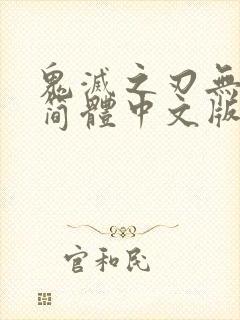 鬼滅之刃無
简體中文版
官和民